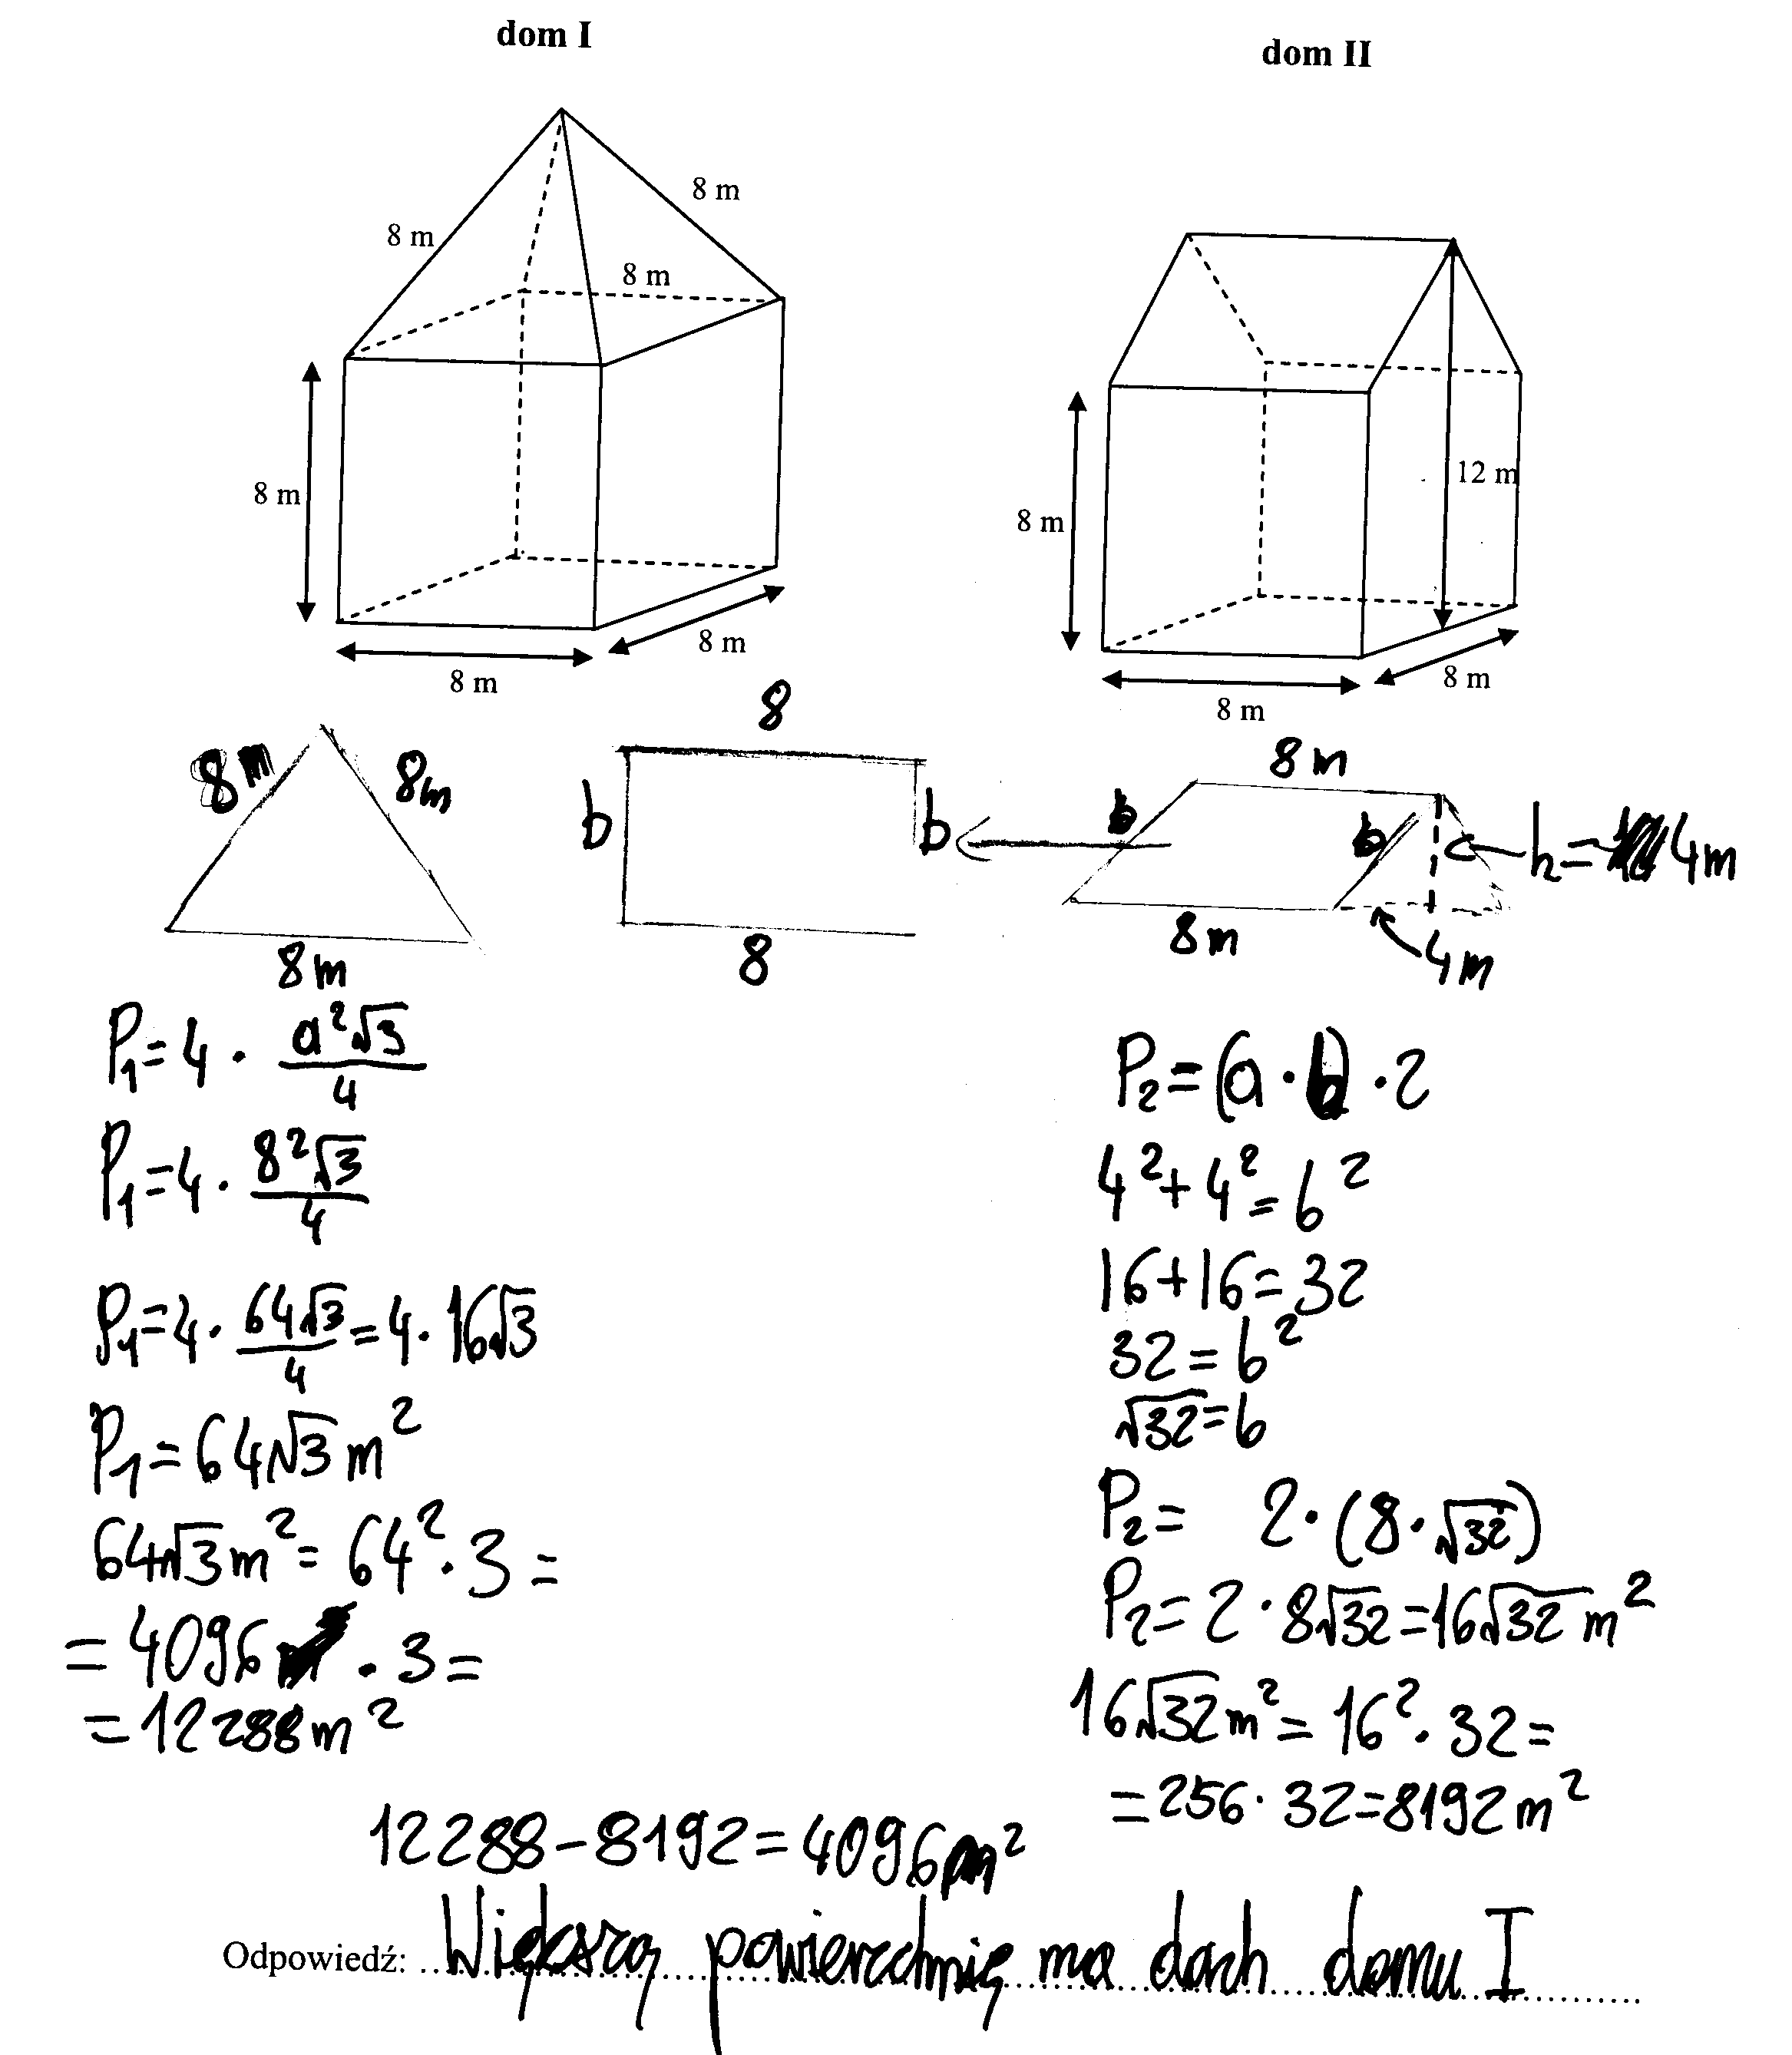 dom I
dom II
8 m
8 m
8 m
8 m
8 m
8 m
12 m
8 m
8 m
8 m
8m
8m
8m
8
b
b
8
8m
b
b
h = 4m
8m
4m
P₁ = 4 · a²√3/4
P₁ = 4 · 8²√3/4
P₁ = 4 · 64√3/4 = 4 · 16√3
P₁ = 64√3 m²
64√3 m² = 64² · 3 =
= 4096 · 3 =
= 12288 m²
P₂ = (a · b) · 2
4² + 4² = b²
16 + 16 = 32
32 = b²
√32 = b
P₂ = 2 · (8 · √32)
P₂ = 2 · 8√32 = 16√32 m²
16√32 m² = 16² · 32 =
= 256 · 32 = 8192 m²
12288 – 8192 = 4096 m²
Odpowiedź: Większą powierzchnię ma dach domu I